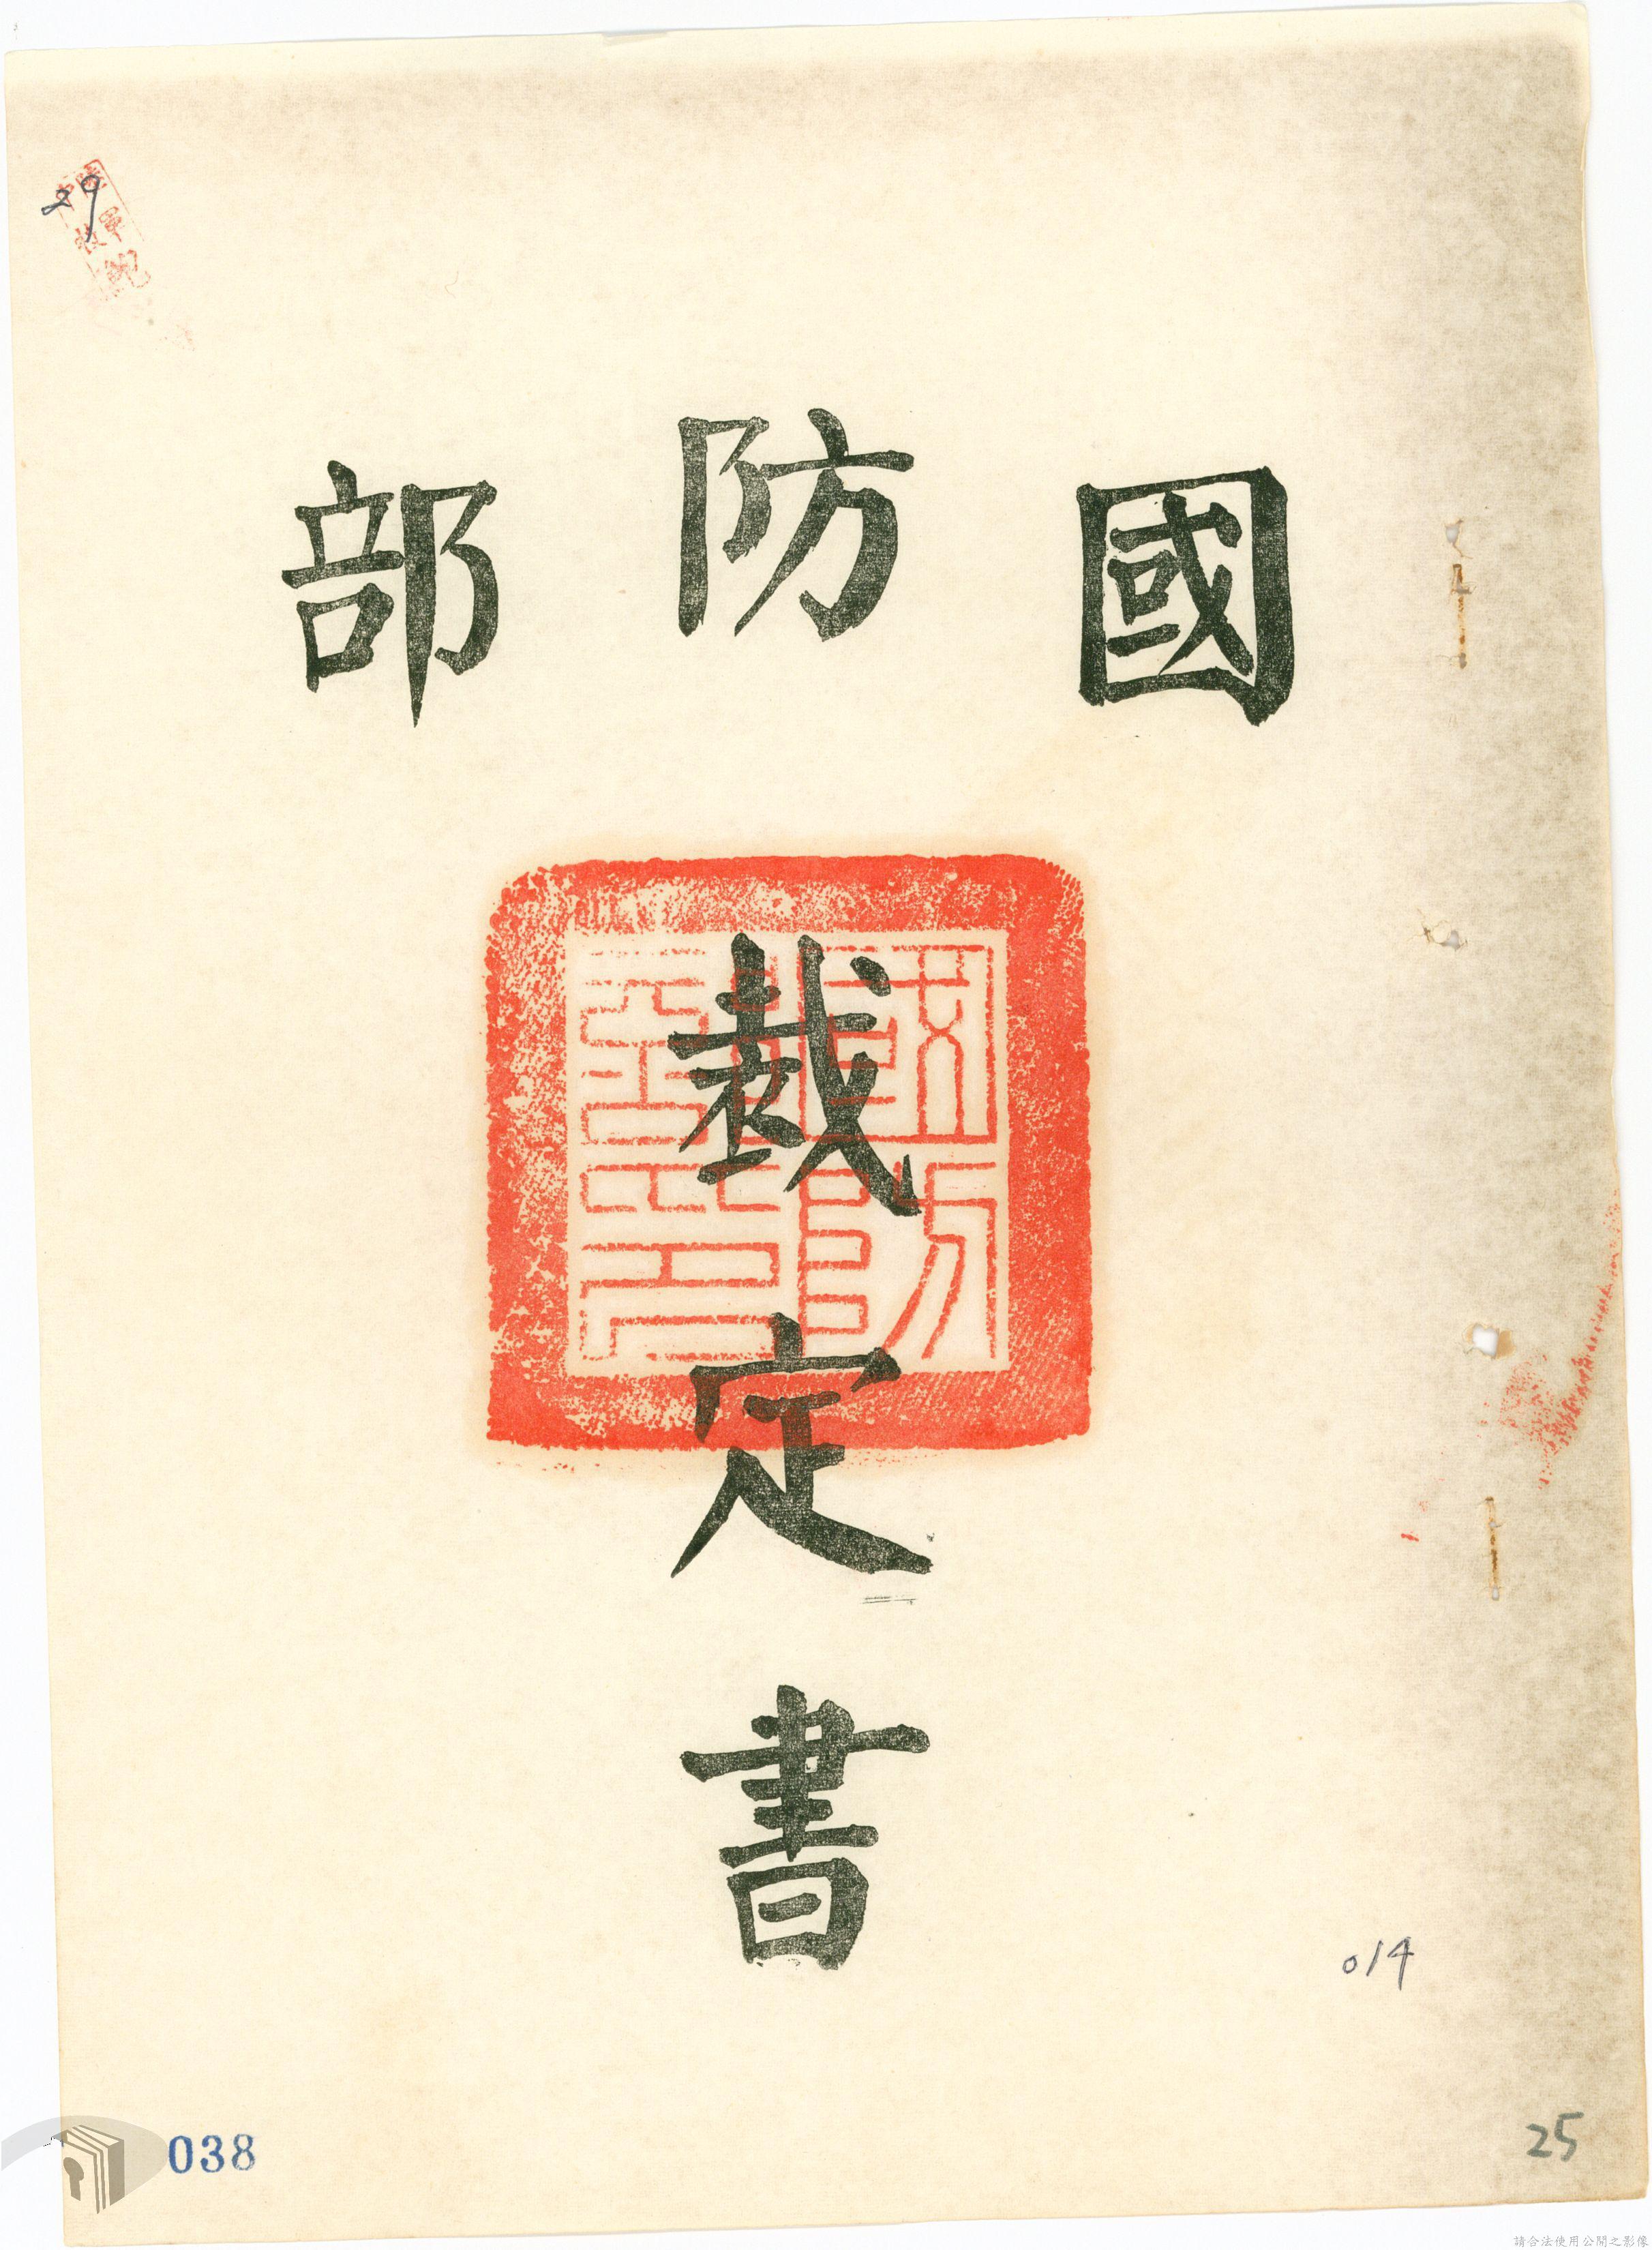 29
國防部
國防部印
裁定書
014
038
25
請合法使用公開之影像